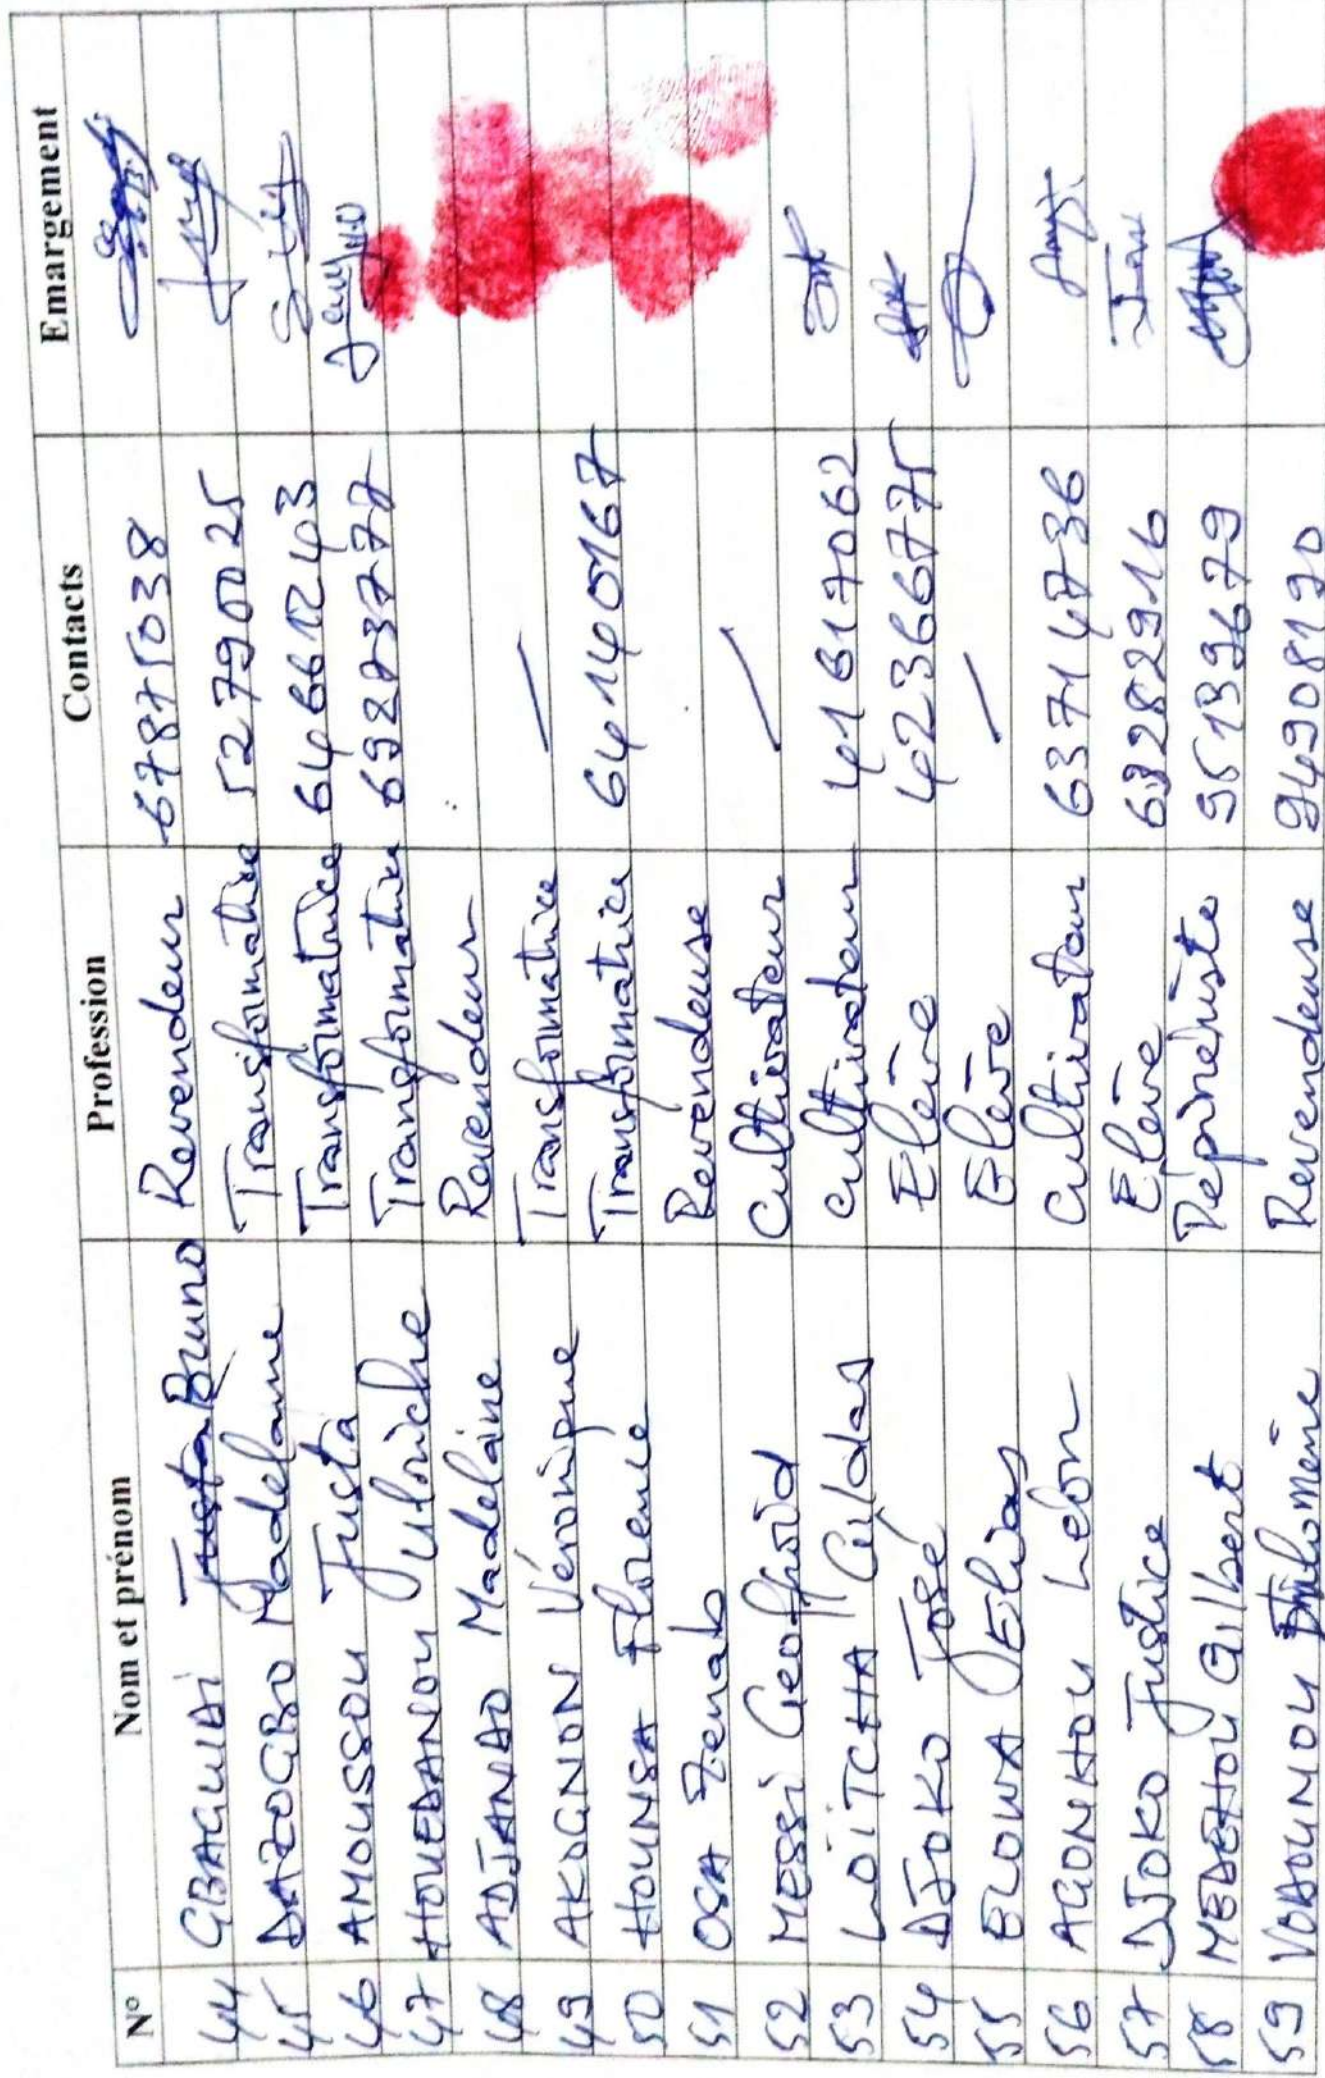 N° Nom et prénom Profession Contacts Emargement
44 GBAGUIDI Bruno Revendeur 67875038
45 DAZOGBO Madeleine Transformatrice 52790025
46 AMOUSSOU Justa Transformatrice 64661243
47 HOUEDANOU Transformatrice 69273777
48 ADJANDO Madeleine Revendeur
49 AKOGNON Véronique Transformatrice —
50 HOUNSA Florence Transformatrice 64140167
51 OSA Zenab Revendeuse
52 MESSI Geoffroid Cultivateur —
53 LOITCHA Gildas Cultivateur 41617062
54 DJOKO José Elève 42366775
55 ELOWA Elias Elève —
56 AGONHOU Léon Cultivateur 63714736
57 DJOKO Justice Elève 63282916
58 MEDEHOU Gilbert Pépinièriste 95139679
59 VODOUNOU Philomène Revendeuse 94908170